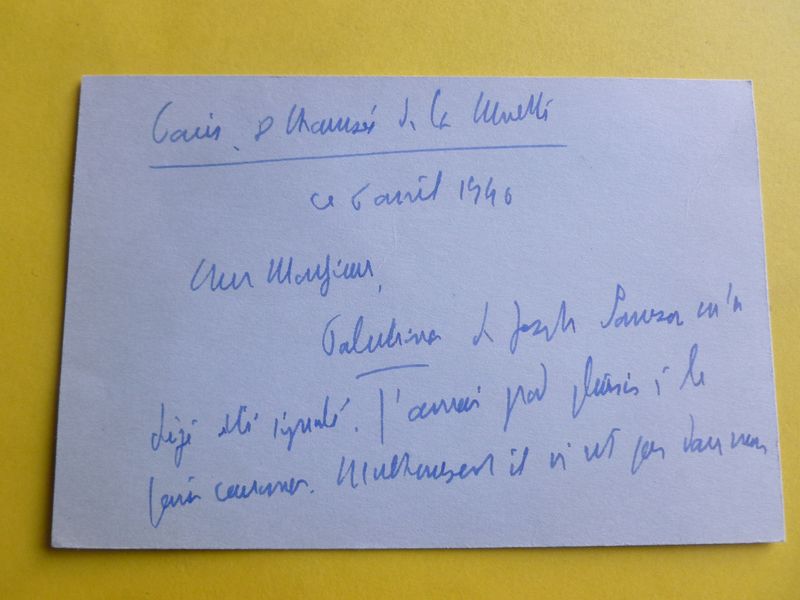 Paris, 8 Chaussée de la Muette
ce 6 avril 1946
Cher Monsieur,
de Joseph m'a
déjà été signalé. J'aurai grand plaisir à le
faire couronner. Malheureusement il n'est pas dans mon